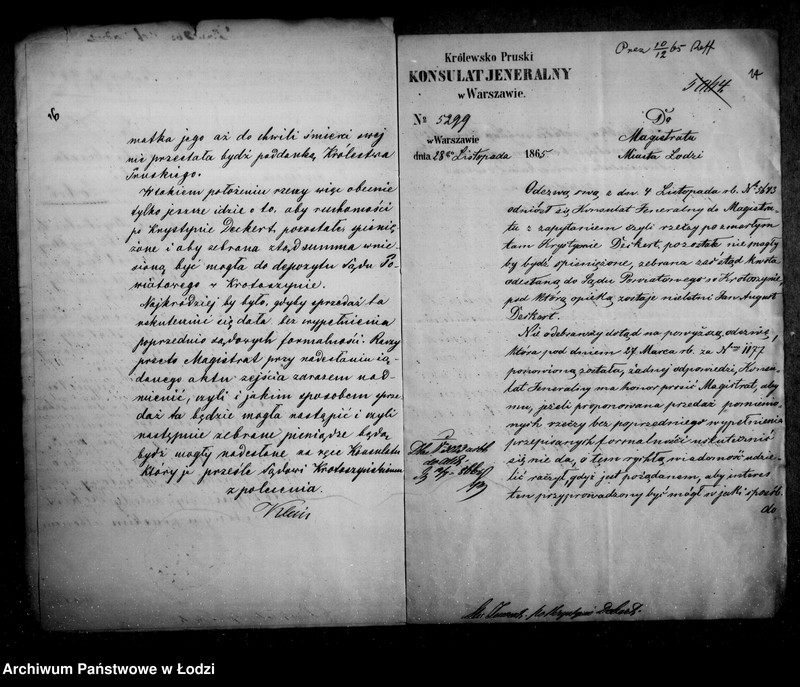 16
matka jego aż do chwili śmierci swej
nie przestała bydź poddanką Królestwa
Pruskiego.
W takiem położeniu rzeczy więc obecnie
tylko jeszcze idzie o to, aby ruchomości
po Krystynie Deckert, pozostałe, spienię
żone i aby zebrana ztąd summa wnie-
sioną być mogła do depozytu Sądu Po-
wiatowego w Krotoszynie.
Najkródziej by było, gdyby sprzedaż ta
uskutecznić się dała bez wypełnienia
poprzednio sądowych formalności. Raczy
przeto Magistrat przy nadesłaniu żą-
danego aktu zejścia zarazem nad-
mienić, czyli i jakim sposobem sprze-
daż ta będzie mogła nastąpić i czyli
następnie zebrane pieniądze będą
bydź mogły nadesłane na ręce Konsulatu
który je prześle Sądowi Krotoszyńskiemu
z polecenia.
Królewsko Pruski
KONSULAT JENERALNY
w Warszawie.
№ 5299
w Warszawie
dnia 28go Listopada 1865
Prez 10/12 65
Do
Magistratu
Miasta Lodzi
Odezwą swą z dn. 4 Listopada rb. № 5643
odniósł się Konsulat Jeneralny do Magistra-
tu z zapytaniem czyli rzeczy po zmarłej tam
Krystynie Deckert, pozostałe nie mogły
by bydź spieniężone, zebrana zaś ztąd kwota
odesłaną do Sądu Powiatowego w Krotoszynie,
pod którą opieką zostaje nieletni Jan August
Deckert.
Nie odebrawszy dotąd na powyższą odezwę,
która pod dniem 27 Marca rb. za № 1177
ponowioną została, żadnej odpowiedzi, Konsu-
lat Jeneralny ma honor prosić Magistrat, aby
mu, jeżeli proponowana przedaż pomienio-
nych rzeczy bez poprzedniego wypełnienia
przepisanych formalności uskutecznić
się nie da, o tem rychłą wiadomość udzie-
lić raczył, gdyż jest pożądanem, aby interes
ten przyprowadzony być mógł w jaki sposób
do
po Krystynie Deckert.
Archiwum Państwowe w Łodzi